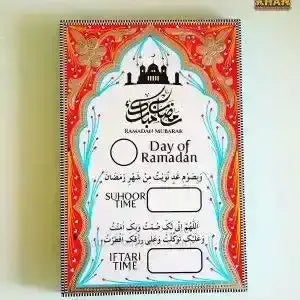 KHAN
رمضان مبارك
RAMADAN MUBARAK
Day of
Ramadan
وَبِصَوْمِ غَدٍ نَّوَيْتُ مِنْ شَهْرِ رَمَضَانَ
SUHOOR
TIME
اَللّٰهُمَّ اِنِّی لَکَ صُمْتُ وَبِکَ اٰمَنْتُ
وَعَلَيْکَ تَوَکَّلْتُ وَعَلٰی رِزْقِکَ اَفْطَرْتُ
IFTARI
TIME